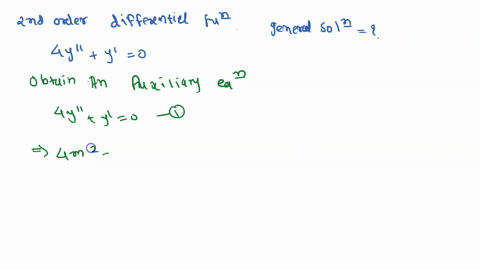 2nd order differential Fuⁿ
general Solⁿ = ?
4y'' + y' = 0
Obtain An Auxiliary eqⁿ
4y'' + y' = 0 —①
⇒ 4m² -